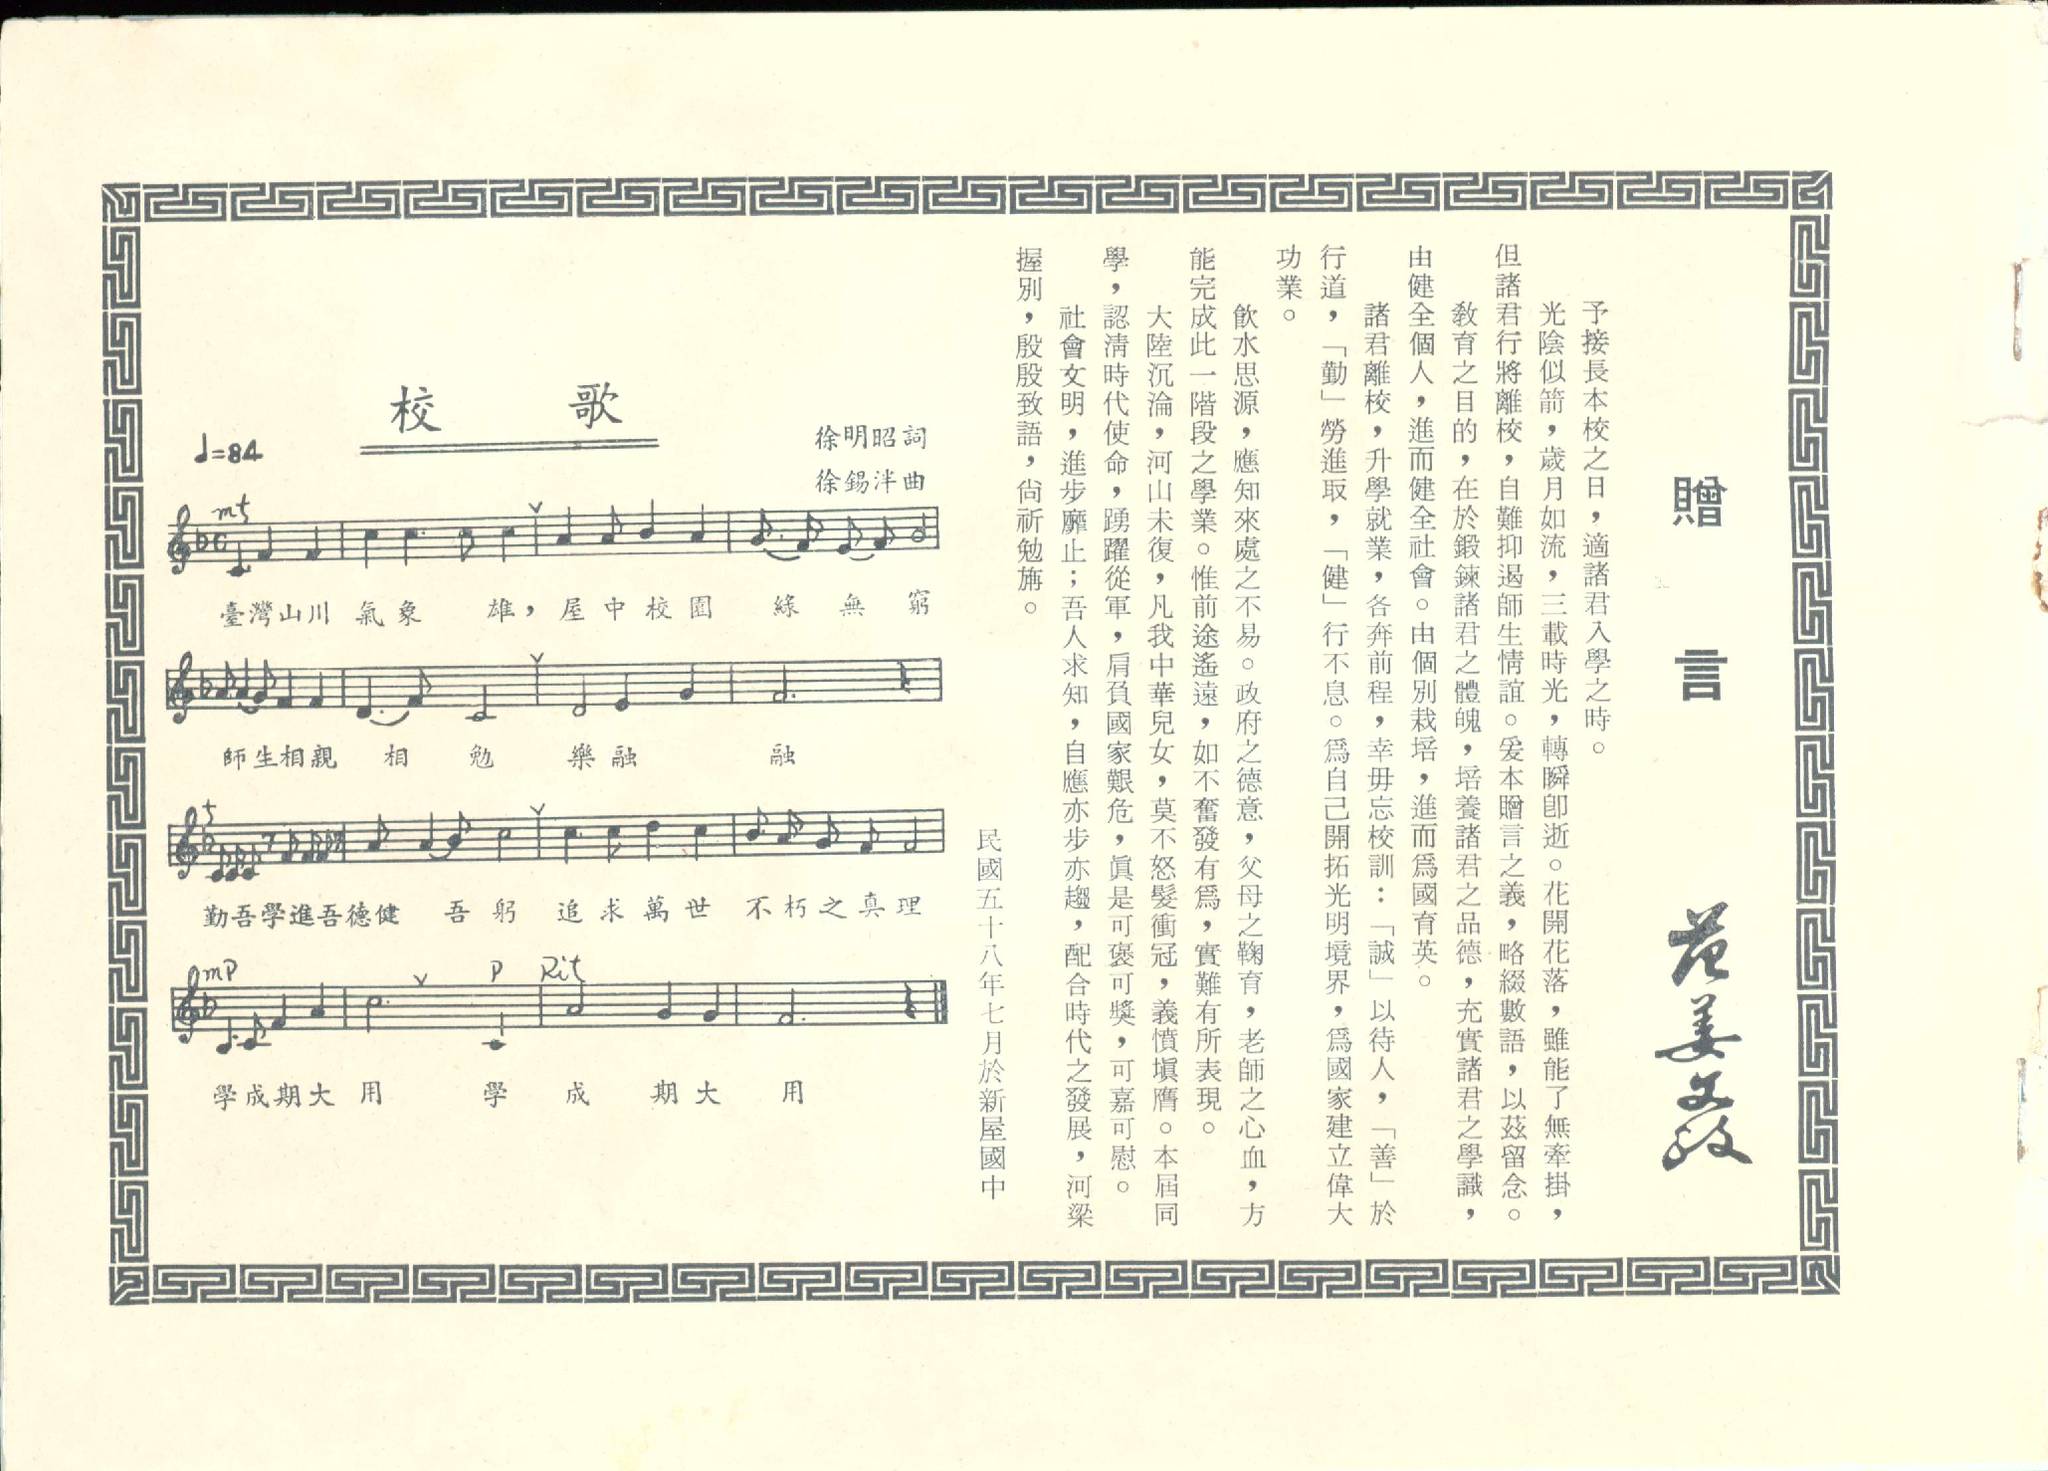 贈言
范姜文
予接長本校之日，適諸君入學之時。
光陰似箭，歲月如流，三載時光，轉瞬卽逝。花開花落，雖能了無牽掛，
但諸君行將離校，自難抑遏師生情誼。爰本贈言之義，略綴數語，以茲留念。
敎育之目的，在於鍛鍊諸君之體魄，培養諸君之品德，充實諸君之學識，
由健全個人，進而健全社會。由個別栽培，進而爲國育英。
諸君離校，升學就業，各奔前程，幸毋忘校訓：「誠」以待人，「善」於
行道，「勤」勞進取，「健」行不息。爲自己開拓光明境界，爲國家建立偉大
功業。
飮水思源，應知來處之不易。政府之德意，父母之鞠育，老師之心血，方
能完成此一階段之學業。惟前途遙遠，如不奮發有爲，實難有所表現。
大陸沉淪，河山未復，凡我中華兒女，莫不怒髮衝冠，義憤塡膺。本屆同
學，認淸時代使命，踴躍從軍，肩負國家艱危，眞是可褒可獎，可嘉可慰。
社會文明，進步靡止；吾人求知，自應亦步亦趨，配合時代之發展，河梁
握別，殷殷致語，尙祈勉旃。
民國五十八年七月於新屋國中
校歌
徐明昭詞
徐錫泮曲
♩=84
mf
臺灣山川氣象雄，屋中校園綠無窮
師生相親相勉樂融融
f
勤吾學進吾德健吾躬追求萬世不朽之真理
mp p Rit
學成期大用學成期大用